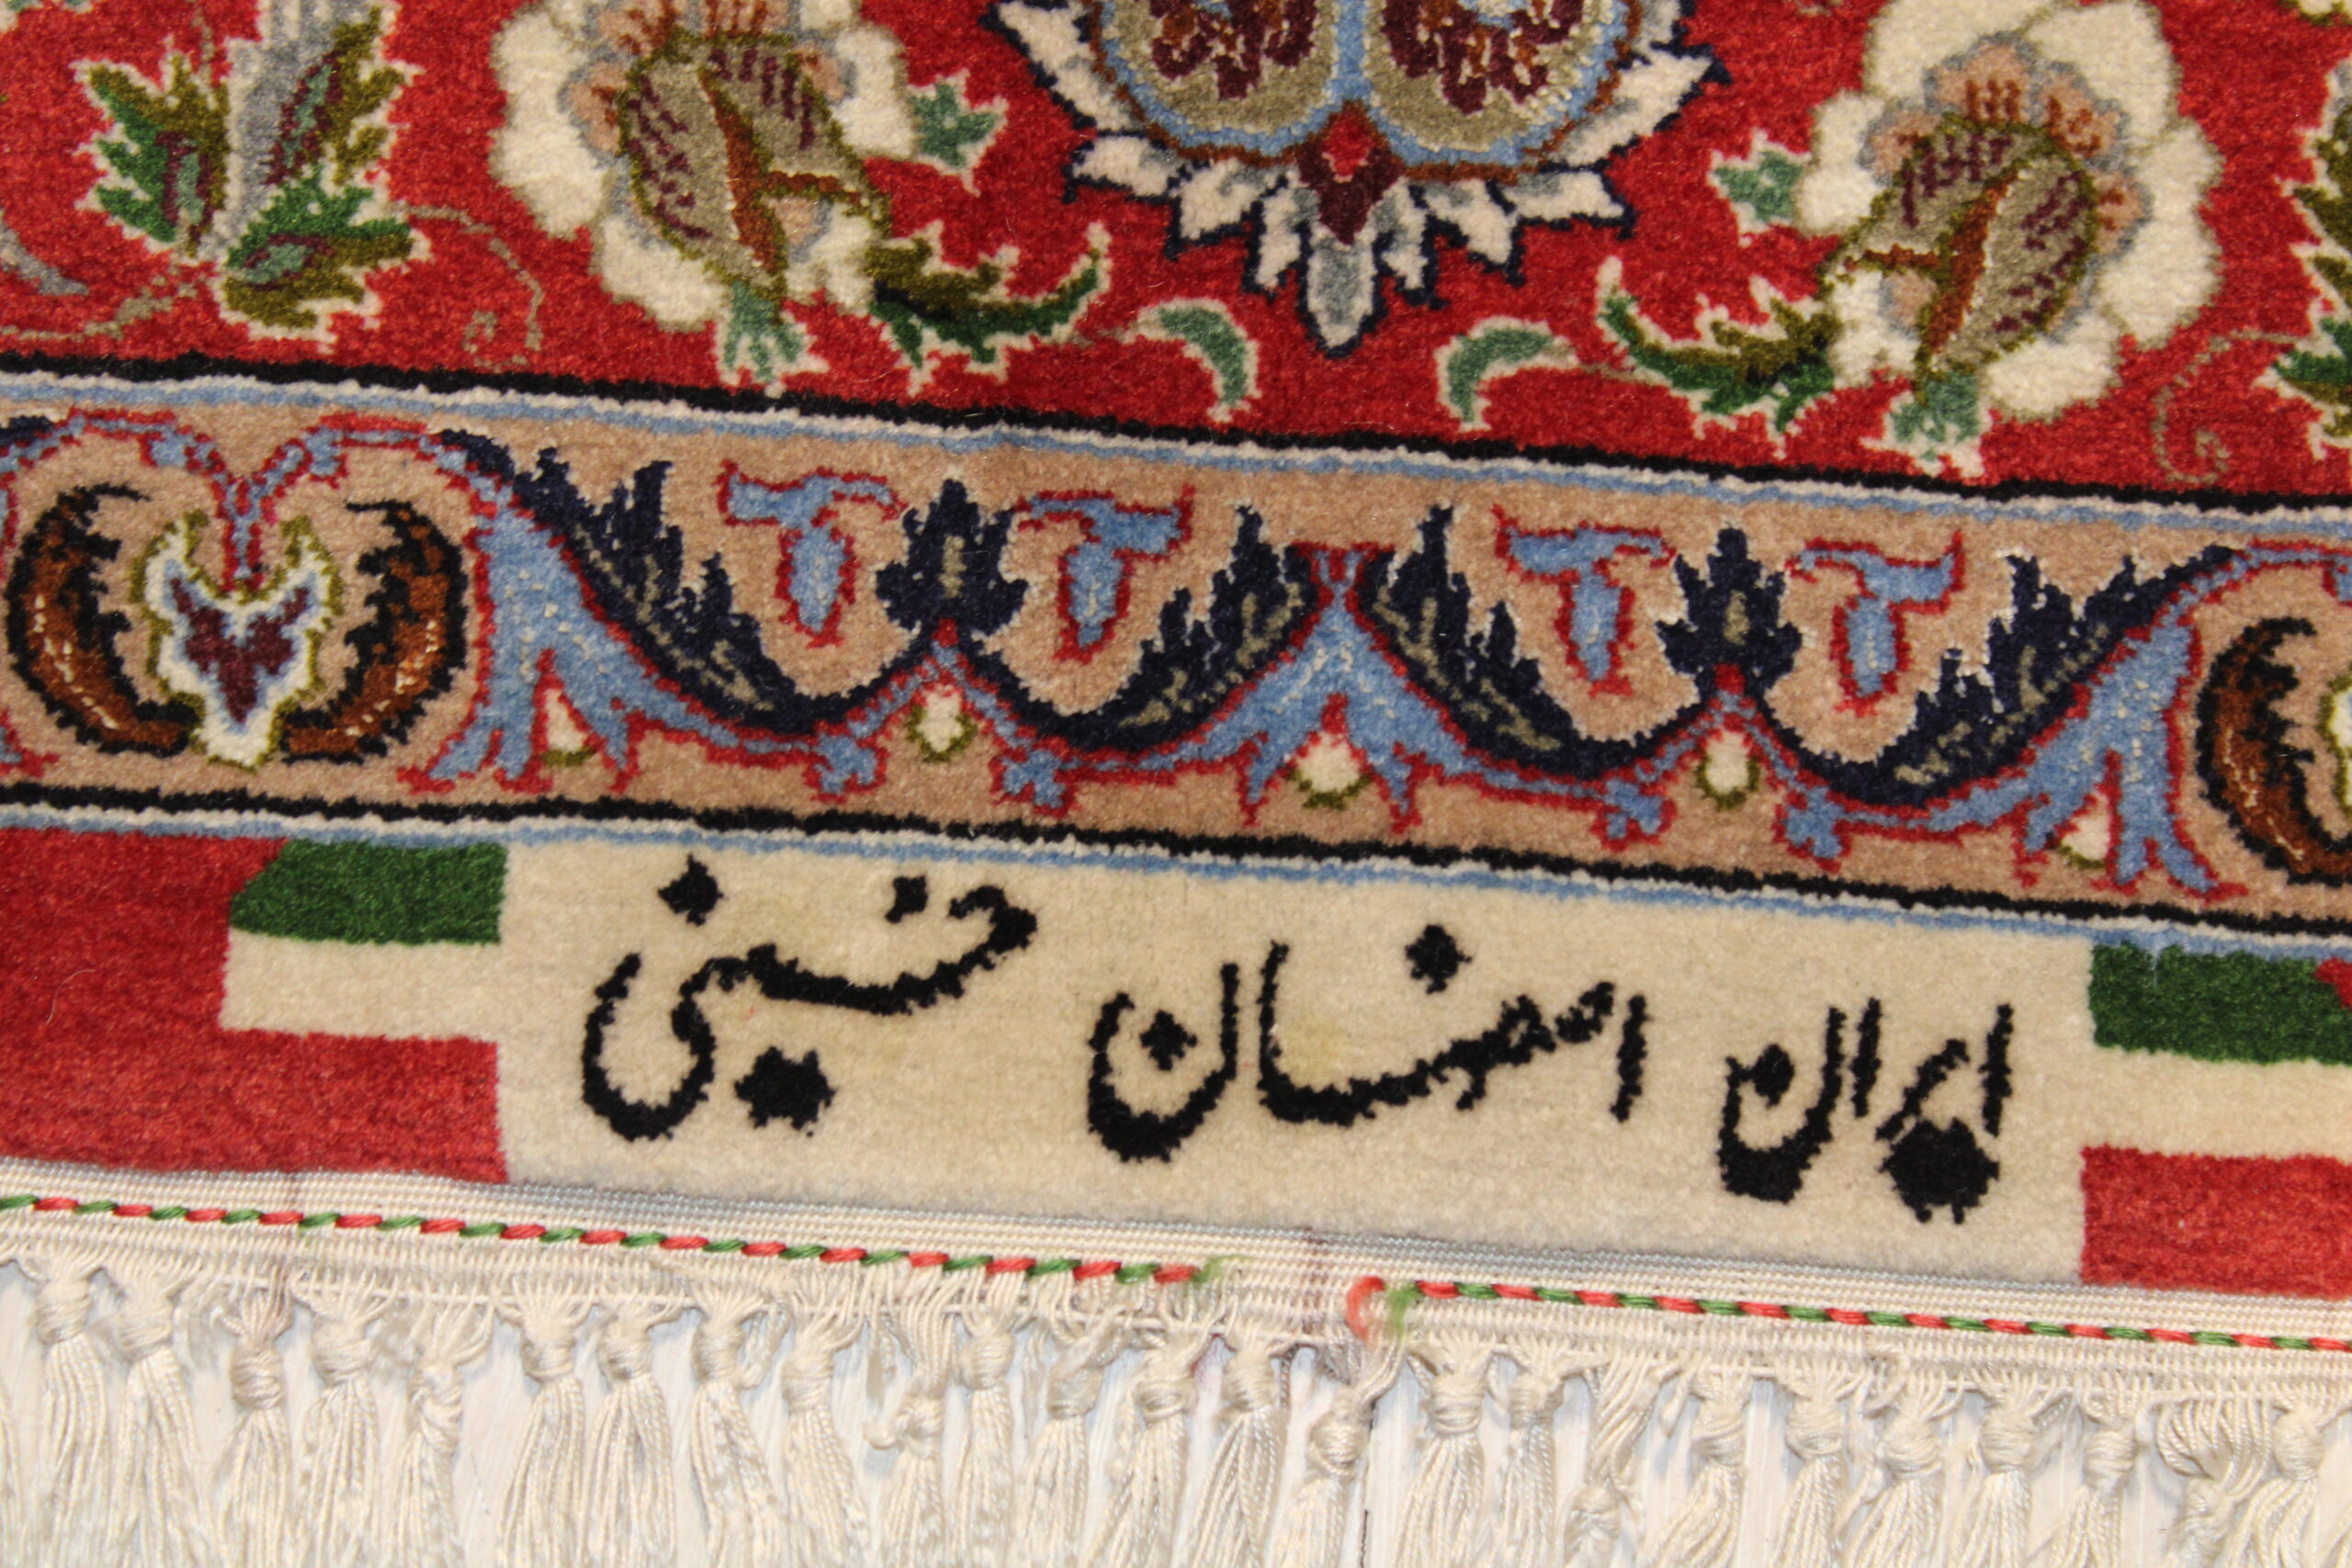 ایران اصفهان حسینی